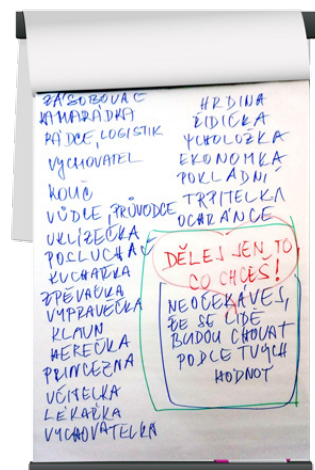 ZÁSOBOVAČ
KAMARÁDKA
RÁDCE, LOGISTIK
VYCHOVATEL
KOUČ
VŮDCE, PRŮVODCE
UKLÍZEČKA
POSLUCHAČ
KUCHAŘKA
ZPĚVAČKA
VYPRAVĚČKA
KLAUN
HEREČKA
PRINCEZNA
UČITELKA
LÉKAŘKA
VYCHOVATELKA
HRDINA
ŘIDIČKA
PSYCHOLOŽKA
EKONOMKA
POKLADNÍ
TRPITELKA
OCHRÁNCE
DĚLEJ JEN TO
CO CHCEŠ!
NEOČEKÁVEJ,
ŽE SE LIDÉ
BUDOU CHOVAT
PODLE TVÝCH
HODNOT